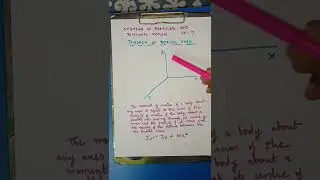 SYSTEMS OF PARTICLES AND
ROTATIONAL MOTION CH. 7
THEOREM OF PARALLEL AXES
Z
X
The moment of inertia of a body about
any axis is equal to the sum of the
moment of inertia of the body about a
parallel axis passing through its centre of
mass and the product of its mass and
the square of the distance between the
two parallel axes.